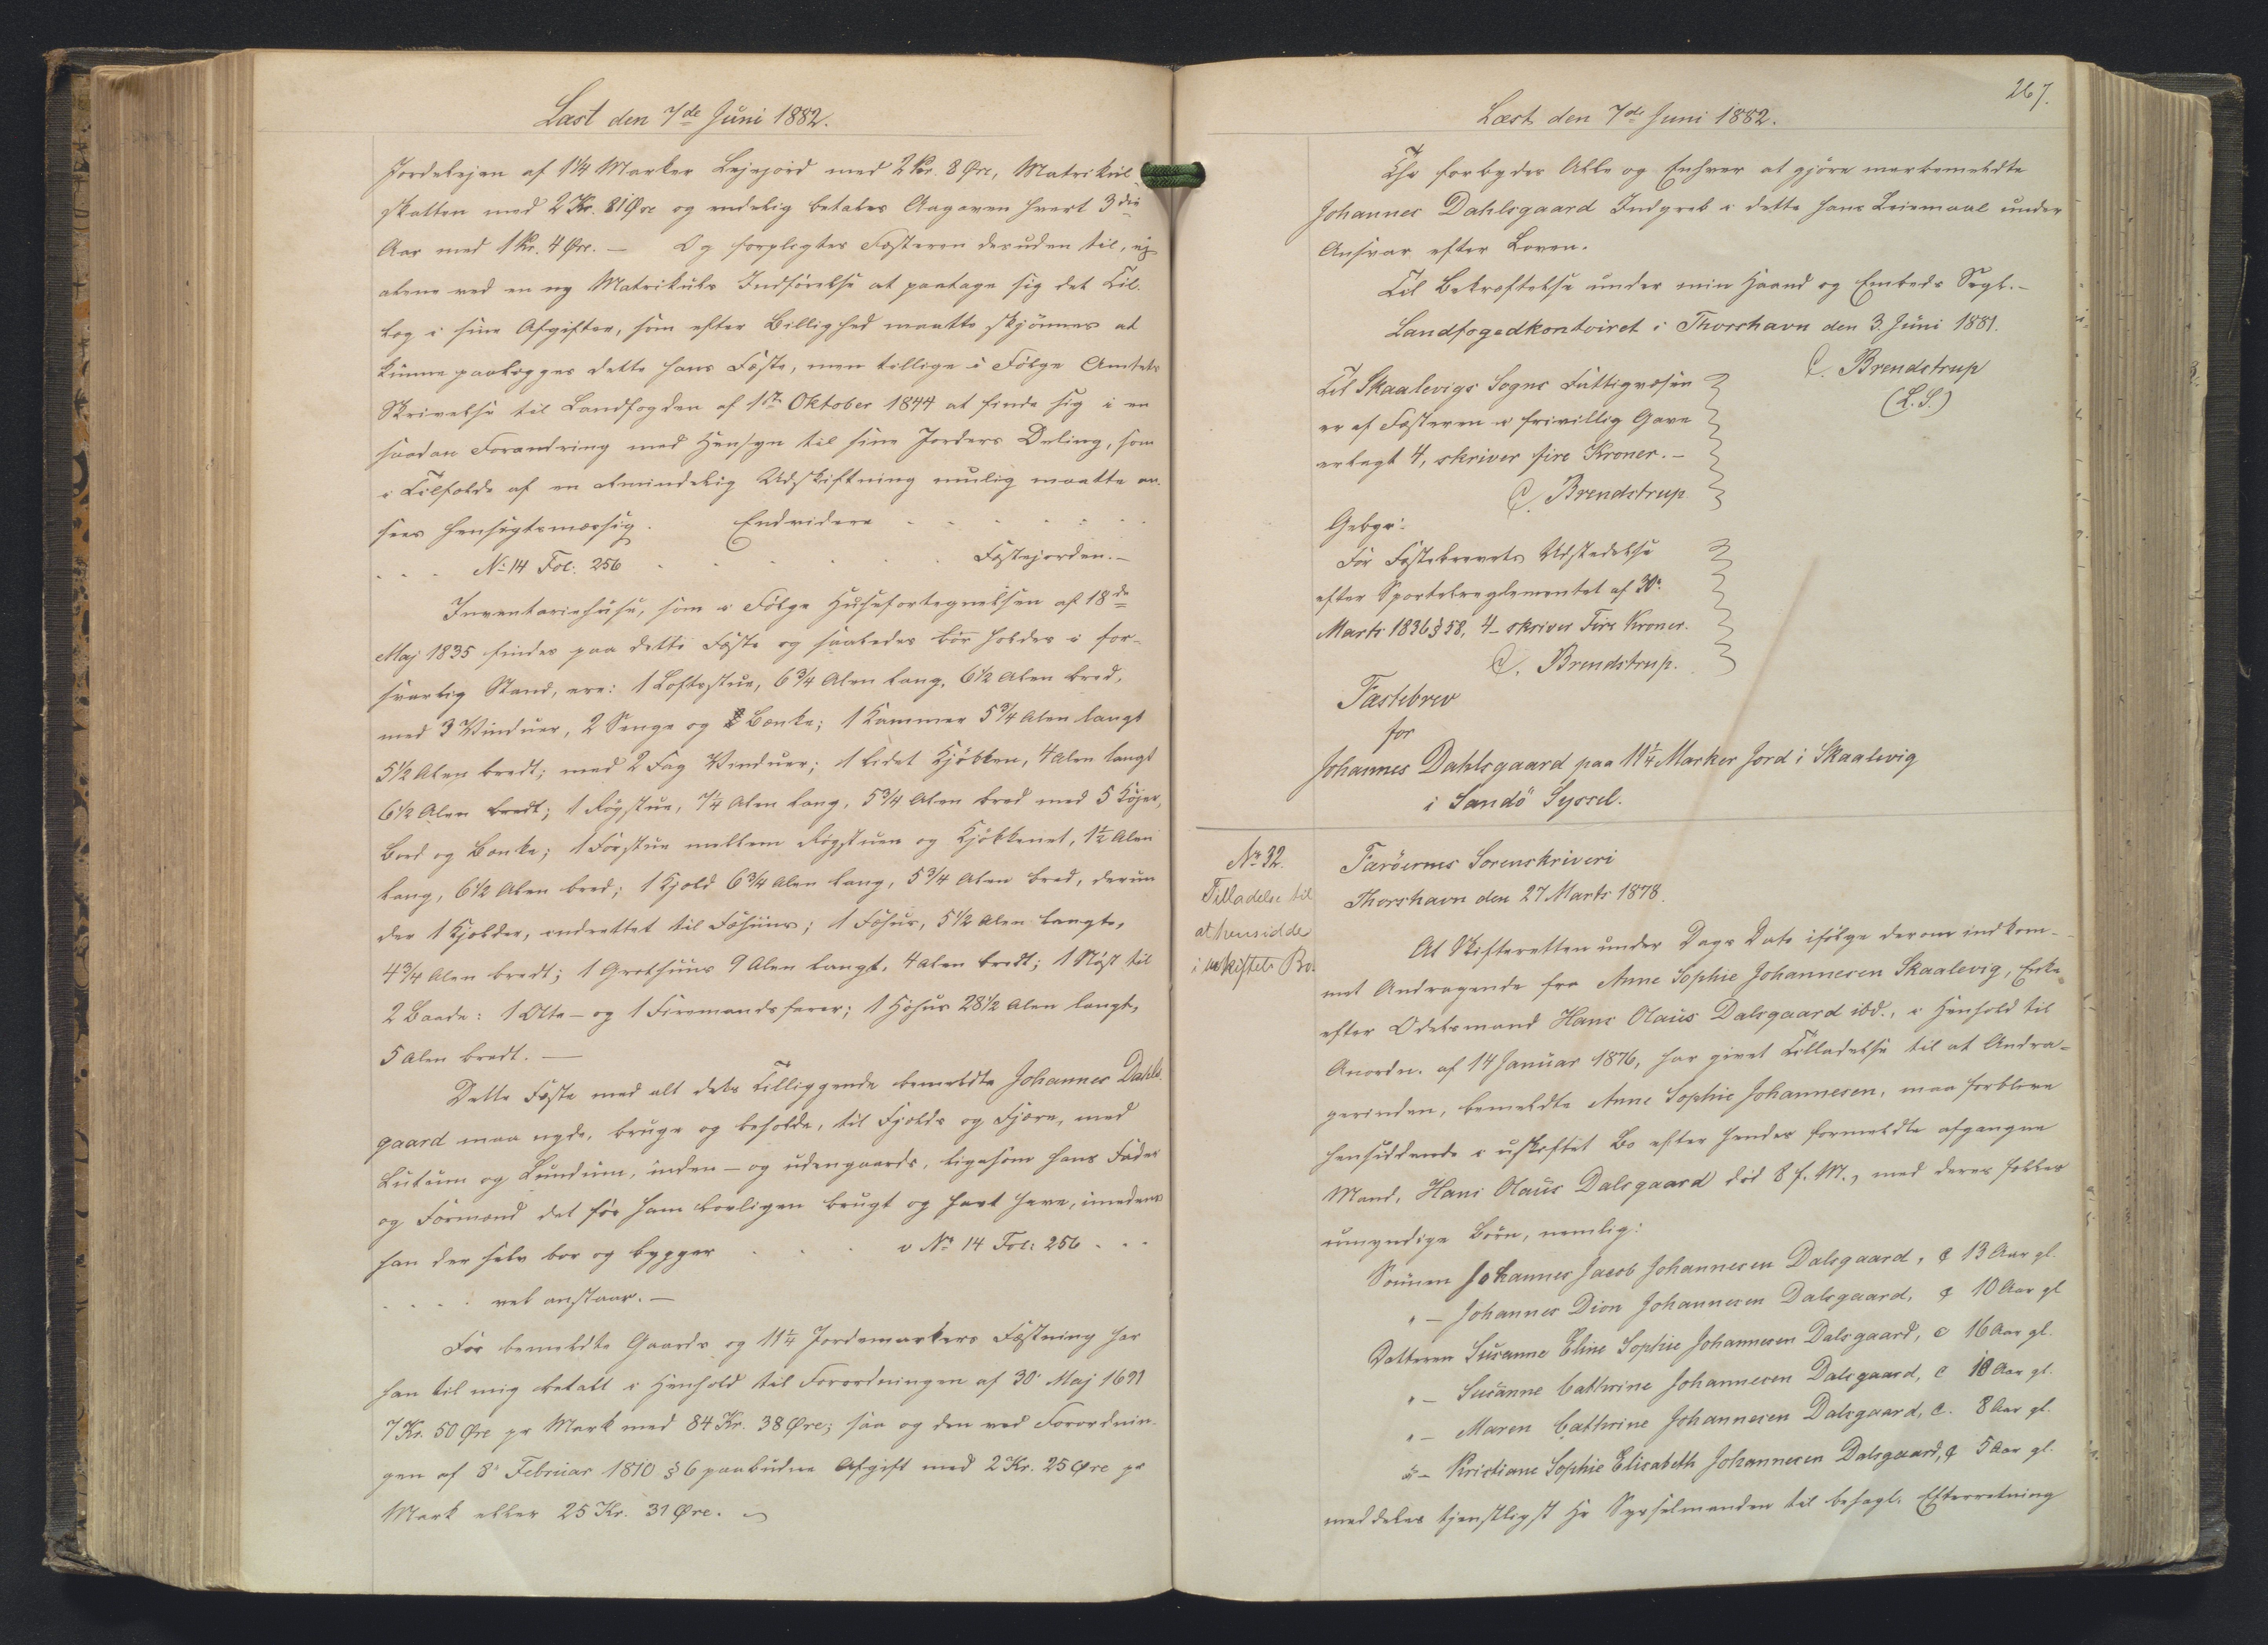 Læst den 7de Juni 1882.
Jordelejen af 11¼ Marker Lejejord med 2 Kr. 8 Øre, Matrikul-
skatten med 2 Kr. 81 Øre og endelig betales Aagaven hvert 3die
Aar med 1 Kr. 4 Øre. — Og forpligtes Fæsteren desuden til, ej
alene ved en ny Matrikuls Indførelse at paatage sig det Til-
læg i sine Afgifter, som efter Billighed maatte skjønnes at
kunne paalægges dette hans Fæste, men tillige i Følge Amtets
Skrivelse til Landfogden af 1ste Oktober 1844 at finde sig i en
saadan Forandring med Hensyn til sine Jorders Deling, som
i Tilfælde af en almindelig Udskiftning mulig maatte an-
sees hensigtsmæssig. Endvidere - - - - - -
- - - No 14 Fol: 256 - - - - - Fæstejorden. —
Inventariehuse, som i Følge Husefortegnelsen af 18de
Maj 1835 findes paa dette Fæste og saaledes bör holdes i for-
svarlig Stand, ere: 1 Loftsstue, 6¾ Alen lang, 6½ Alen bred,
med 3 Vinduer, 2 Senge og Bænke; 1 Kammer 5¾ Alen langt
5½ Alen bredt; med 2 Fag Vinduer; 1 lidet Kjökken, 4 Alen langt
6½ Alen bredt; 1 Røgstue, 7¼ Alen lang, 5¾ Alen bred med 5 Køjer,
Bord og Bænke; 1 Forstue mellem Røgstuen og Kjökkenet, 1½ Alen
lang, 6½ Alen bred; 1 Hjald 6¾ Alen lang, 5¾ Alen bred, derun-
der 1 Kjelder, indrettet til Fæhuus; 1 Fæhus, 5½ Alen langt,
4¾ Alen bredt; 1 Grothuus 9 Alen langt, 4 Alen bredt; 1 Nøst til
2 Baade: 1 Otte- og 1 Firemandsfarer; 1 Høhus 28½ Alen langt,
5 Alen bredt. —
Dette Fæste med alt dets Tilliggende bemeldte Johannes Dahls-
gaard maa nyde, bruge og beholde, til Fjelds og Fjære, med
Lutum og Lundum, inden- og udengaards, ligesom hans Fader
og Formænd det før ham lovligen brugt og havt have, imedens
han der selv bor og bygger - - - v No 14 Fol: 256 - - -
- - - - vel anstaar. —
For bemeldte Gaards og 11¼ Jordemarkers Fæstning har
han til mig betalt i Henhold til Forordningen af 30' Maj 1691
7 Kr. 50 Øre pr Mark med 84 Kr. 38 Øre; saa og den ved Forordnin-
gen af 8' Februar 1810 § 6 paabudne Afgift med 2 Kr. 25 Øre pr
Mark eller 25 Kr. 31 Øre.
267.
Læst den 7de Juni 1882.
Thi forbydes Alle og Enhver at gjöre merbemeldte
Johannes Dahlsgaard Indgreb i dette hans Leiemaal under
Ansvar efter Loven.
Til Bekræftelse under min Haand og Embeds Segl. —
Landfogedkontoiret i Thorshavn den 3. Juni 1881.
C. Brendstrup
(L. S.)
Til Skaalevigs Sogns Fattigvæsen
er af Fæsteren i frivillig Gave
erlagt 4, skriver fire Kroner. —
C. Brendstrup
Gebyr:
For Fæstebrevets Udstedelse
efter Sportelreglementet af 30'
Marts 1836 § 58, 4 - skriver Fire Kroner.
C. Brendstrup.
Fæstebrev
for
Johannes Dahlsgaard paa 11¼ Marker Jord i Skaalevig
i Sandö Syssel.
No 32.
Tilladelse til
at hensidde
i uskiftet Bo.
Færöernes Sorenskriveri
Thorshavn den 27 Marts 1878.
At Skifteretten under Dags Dato ifölge derom indkom-
met Andragende fra Anne Sophie Johannesen Skaalevig, Enke
efter Odelsmand Hans Olaus Dalsgaard ibd., i Henhold til
Anordn. af 14 Januar 1876, har givet Tilladelse til at Andra-
gerinden, bemeldte Anne Sophie Johannesen, maa forblive
hensiddende i uskiftet Bo efter hendes formeldte afgangne
Mand, Hans Olaus Dalsgaard död 8 f. M., med deres fælles
umyndige Börn, nemlig:
Sönnen Johannes Jacob Johannesen Dalsgaard, c 13 Aar gl.
" — Johannes Dion Johannesen Dalsgaard, c 10 Aar gl
Datteren Susanne Eline Sophie Johannesen Dalsgaard, c 16 Aar gl.
" — Susanne Cathrine Johannesen Dalsgaard, c 10 Aar gl.
" — Maren Cathrine Johannesen Dalsgaard, c. 8 Aar gl.
" — Kristiane Sophie Elisabeth Johannesen Dalsgaard, c 5 Aar gl.
meddeles tjenstligst Hr Sysselmanden til behagl. Efterretning